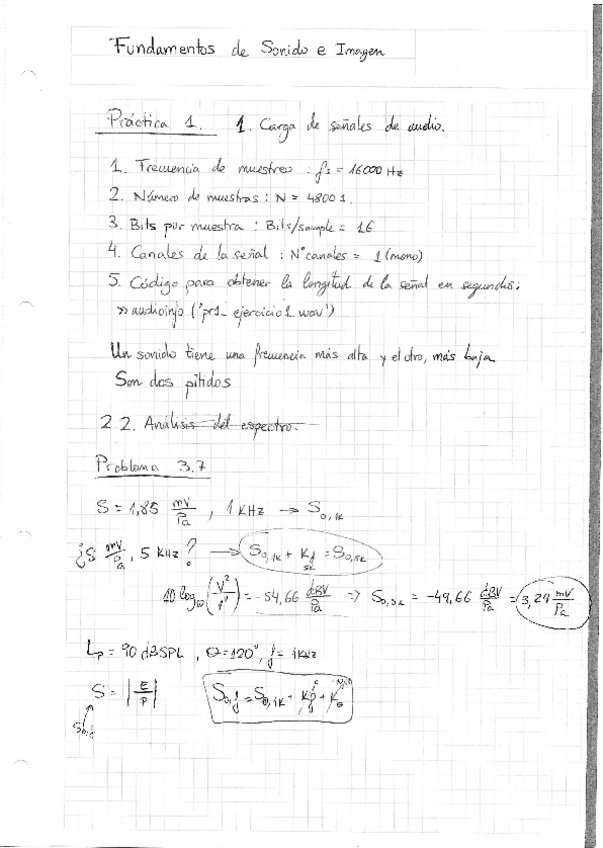 Fundamentos de Sonido e Imagen
Práctica 1. 1. Carga de señales de audio.
1. Frecuencia de muestreo : fs = 16000 Hz
2. Número de muestras : N = 48001.
3. Bits por muestra : Bits/sample = 16
4. Canales de la señal : Nº canales = 1 (mono)
5. Código para obtener la longitud de la señal en segundos:
>> audioinfo ('pr1_ejercicio1.wav')
Un sonido tiene una frecuencia más alta y el otro, más baja
Son dos pitidos
2.2. Análisis del espectro.
Problema 3.7
S = 1,85 mV/Pa , 1 KHz → S0,1K
¿S mV/Pa , 5 KHz? → S0,1K + Kf 5K = S0,5K
10 log10 (V²/P²) = -54,66 dBV/Pa => S0,5K = -49,66 dBV/Pa = 3,29 mV/Pa
Lp = 90 dBSPL , θ = 120°, f = 1KHz
S = |E/P| S0,f = S0,1K + Kf + Kθ